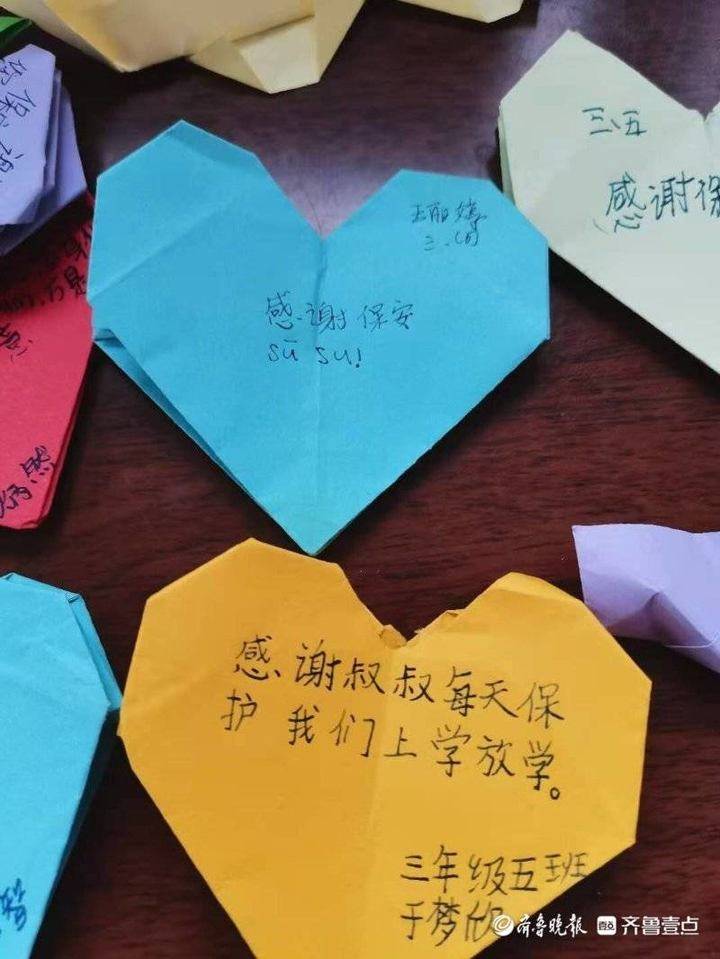 三、五
感谢保
三、(5)
感谢保安
sū su!
感谢叔叔每天保
护我们上学放学。
三年级五班
于梦欣
然
智
齐鲁晚报 齐鲁壹点